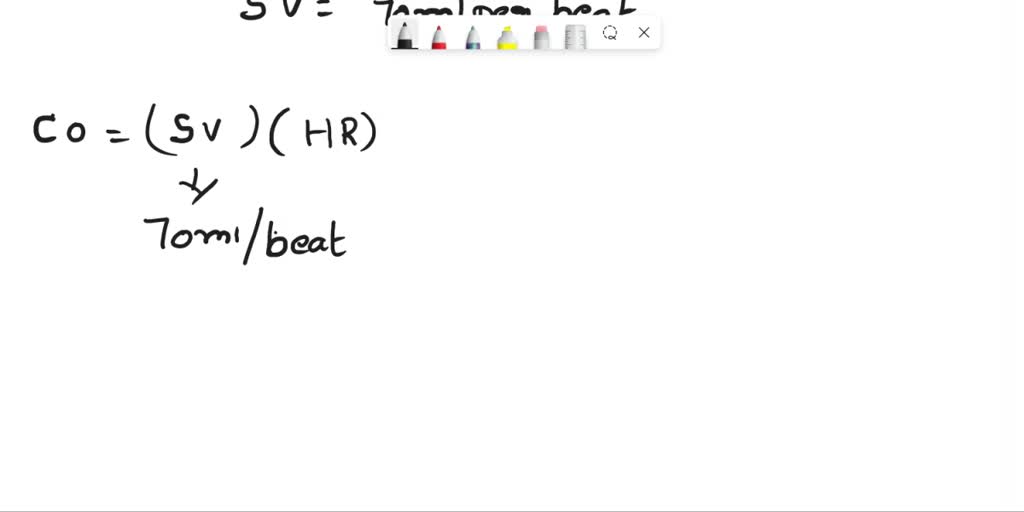 SV = 70ml per beat
CO = (SV)(HR)
70ml/beat